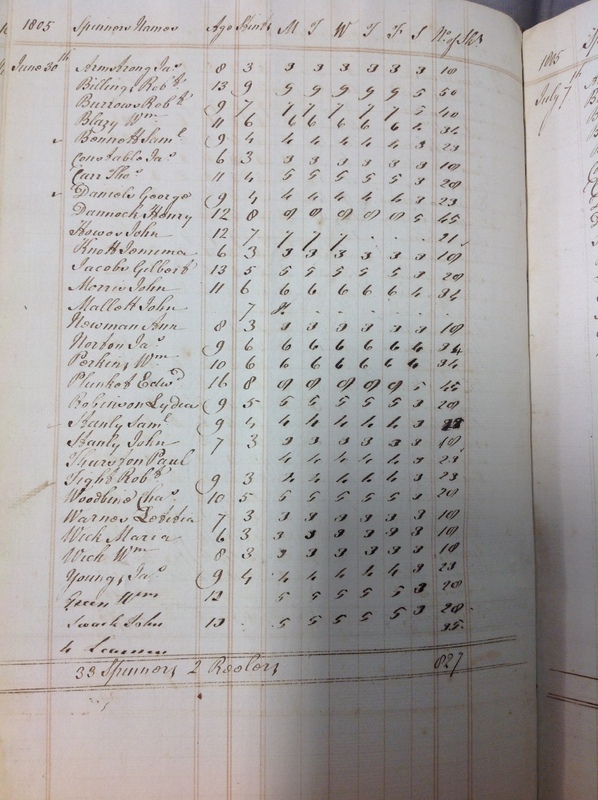 1805 Spinners Names Age Stints M T W T F S No. of Sks
June 30th Armstrong Jas 8 3 3 3 3 3 3 3 18
Billing Robt 13 9 9 9 9 9 9 5 50
Burrows Robt 9 7 7 7 7 7 7 5 40
Blazy Wm 11 6 6 6 6 6 6 4 34
Bennett Saml 9 4 4 4 4 4 4 3 23
Constable Jas 6 3 3 3 3 3 3 3 18
Carr Thos 11 4 5 5 5 5 5 3 28
Daniels George 9 4 4 4 4 4 4 3 23
Dannock Henry 12 8 8 8 8 8 8 5 45
Howes John 12 7 7 7 7 . . . 21
Knott Jemima 6 3 3 3 3 3 3 3 18
Jacobs Gilbert 13 5 5 5 5 5 5 3 28
Morris John 11 6 6 6 6 6 6 4 34
Mallett John 7 . . . . .
Newman Ann 8 3 3 3 3 3 3 3 18
Norton Jas 9 6 6 6 6 6 6 4 34
Perkins Wm 10 6 6 6 6 6 6 4 34
Plunket Edwd 16 8 8 8 8 8 8 5 45
Robinson Lydia 9 5 5 5 5 5 5 3 28
Stanly Saml 9 4 4 4 4 4 4 3
Stanly John 7 3 3 3 3 3 3 3 18
Thurston Paul 4 4 4 4 4 3 23
Tight Robt 9 3 4 4 4 4 4 3 23
Woodbine Chas 10 5 5 5 5 5 5 3 28
Warnes Letitia 7 3 3 3 3 3 3 3 18
Wick Maria 6 3 3 3 3 3 3 3 18
Wick Wm 8 3 3 3 3 3 3 3 18
Youngs Jas 9 4 4 4 4 4 4 3 23
Green Wm 13 5 5 5 5 5 3 28
John 13 . 5 5 5 5 5 3 28
4 35
33 Spinners 2 Reelers 827
1805
July 7th